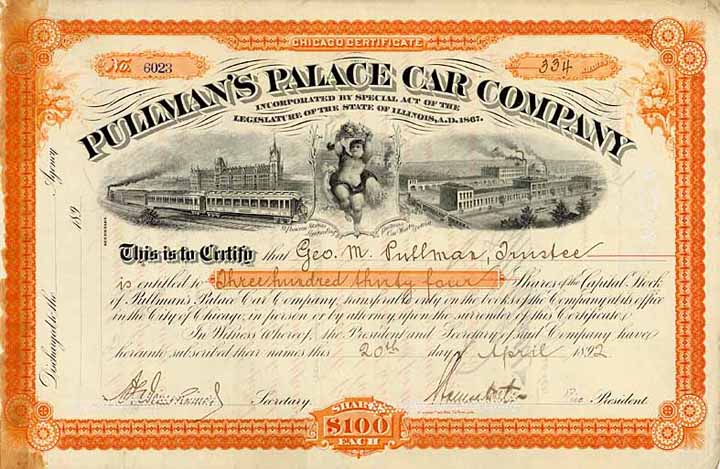 CHICAGO CERTIFICATE
No. 6023
334 SHARES
PULLMAN'S PALACE CAR COMPANY
INCORPORATED BY SPECIAL ACT OF THE
LEGISLATURE OF THE STATE OF ILLINOIS, A.D. 1867.
This is to Certify that Geo. M. Pullman, Trustee
is entitled to Three hundred thirty four Shares of the Capital Stock
of Pullman's Palace Car Company, transferable only on the books of the Company at its office
in the City of Chicago, in person or by attorney, upon the surrender of this Certificate.
In Witness Whereof, the President and Secretary of said Company have
hereunto subscribed their names this 20th day of April 1892
Secretary.
Vice President.
SHARES
$100
EACH
Discharged at the Agency
189